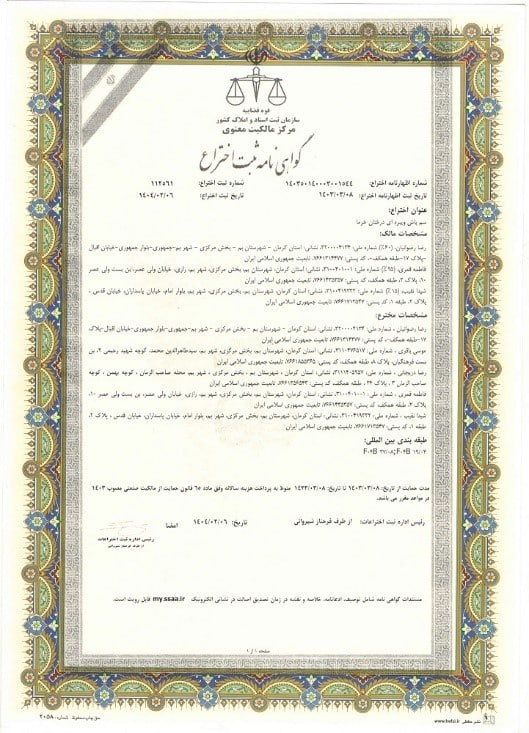 قوه قضاییه
سازمان ثبت اسناد و املاک کشور
مرکز مالکیت معنوی
گواهی نامه ثبت اختراع
شماره اظهارنامه اختراع: ۱۴۰۳۵۰۱۴۰۰۰۳۰۰۱۵۴۴ شماره ثبت اختراع: ۱۱۲۵۶۱
تاریخ ثبت اظهارنامه اختراع: ۱۴۰۳/۰۳/۰۸ تاریخ ثبت اختراع: ۱۴۰۴/۰۲/۰۶
عنوان اختراع:
سم پاش ویبره ای درختان خرما
مشخصات مالک:
رضا رضوانیان، (۶۰٪) شماره ملی: نشانی: استان کرمان – شهرستان بم – بخش مرکزی – شهر بم–جمهوری–بلوار جمهوری–خیابان اقبال
–پلاک ۱۷–طبقه همکف– کد پستی: تابعیت جمهوری اسلامی ایران
فاطمه قمری، شماره ملی: نشانی: استان کرمان، شهرستان بم، بخش مرکزی، شهر بم، رازی، خیابان ولی عصر، بن بست ولی عصر
۱۰، پلاک ۲، طبقه همکف، کد پستی: تابعیت جمهوری اسلامی ایران
شیدا نقیب، (۱۵٪) شماره ملی: نشانی: استان کرمان، شهرستان بم، بخش مرکزی، شهر بم، بلوار امام، خیابان پاسداران، خیابان قدس ،
پلاک ۲، طبقه ۱، کد پستی: تابعیت جمهوری اسلامی ایران
مشخصات مخترع:
رضا رضوانیان، شماره ملی: نشانی: استان کرمان – شهرستان بم – بخش مرکزی – شهر بم–جمهوری–بلوار جمهوری–خیابان اقبال–پلاک
۱۷–طبقه همکف–، کد پستی: تابعیت جمهوری اسلامی ایران
موسی باقری، شماره ملی: نشانی: استان کرمان، شهرستان بم، بخش مرکزی، شهر بم، سیدطاهرالدین محمد، کوچه شهید رحیمی ۲، بن
بست فرهنگیان، پلاک ۸، طبقه همکف، کد پستی: تابعیت جمهوری اسلامی ایران
رضا شماره ملی: نشانی: استان کرمان، شهرستان بم ، بخش مرکزی ، شهر بم، محله صاحب الزمان ، کوچه بهمن ، کوچه
صاحب الزمان ۳ ، پلاک ۲۴، طبقه همکف کد پستی: تابعیت جمهوری اسلامی ایران
فاطمه قمری ، شماره ملی: نشانی: استان کرمان، شهرستان بم، بخش مرکزی، شهر بم، رازی، خیابان ولی عصر، بن بست ولی عصر ۱۰،
پلاک ۲، طبقه همکف، کد پستی: تابعیت جمهوری اسلامی ایران
شیدا نقیب ، شماره ملی: نشانی: استان کرمان، شهرستان بم، بخش مرکزی، شهر بم، بلوار امام، خیابان پاسداران، خیابان قدس ، پلاک ۲،
طبقه ۱، کد پستی: تابعیت جمهوری اسلامی ایران
طبقه بندی بین المللی:
F۰۴B ۲۷/۰۸;F۰۴B ۱۹/۰۴
مدت حمایت از تاریخ: ۱۴۰۳/۰۳/۰۸ تا تاریخ: ۱۴۲۳/۰۳/۰۸ منوط به پرداخت هزینه سالانه وفق ماده ۶۵ قانون حمایت از مالکیت صنعتی مصوب ۱۴۰۳
در مواعد مقرر می باشد.
رئیس اداره ثبت اختراعات: از طرف فرحناز شیروانی تاریخ: ۱۴۰۴/۰۲/۰۶ امضا
رئیس اداره ثبت اختراعات
از طرف فرحناز شیروانی
مستندات گواهی نامه شامل توصیف، ادعانامه، خلاصه و نقشه در زمان تصدیق اصالت در نشانی الکترونیک my.ssaa.ir قابل رویت است.
صفحه ۱ از ۱
www.hefzi.ir
حق چاپ محفوظ شماره: ۲۰۵۸